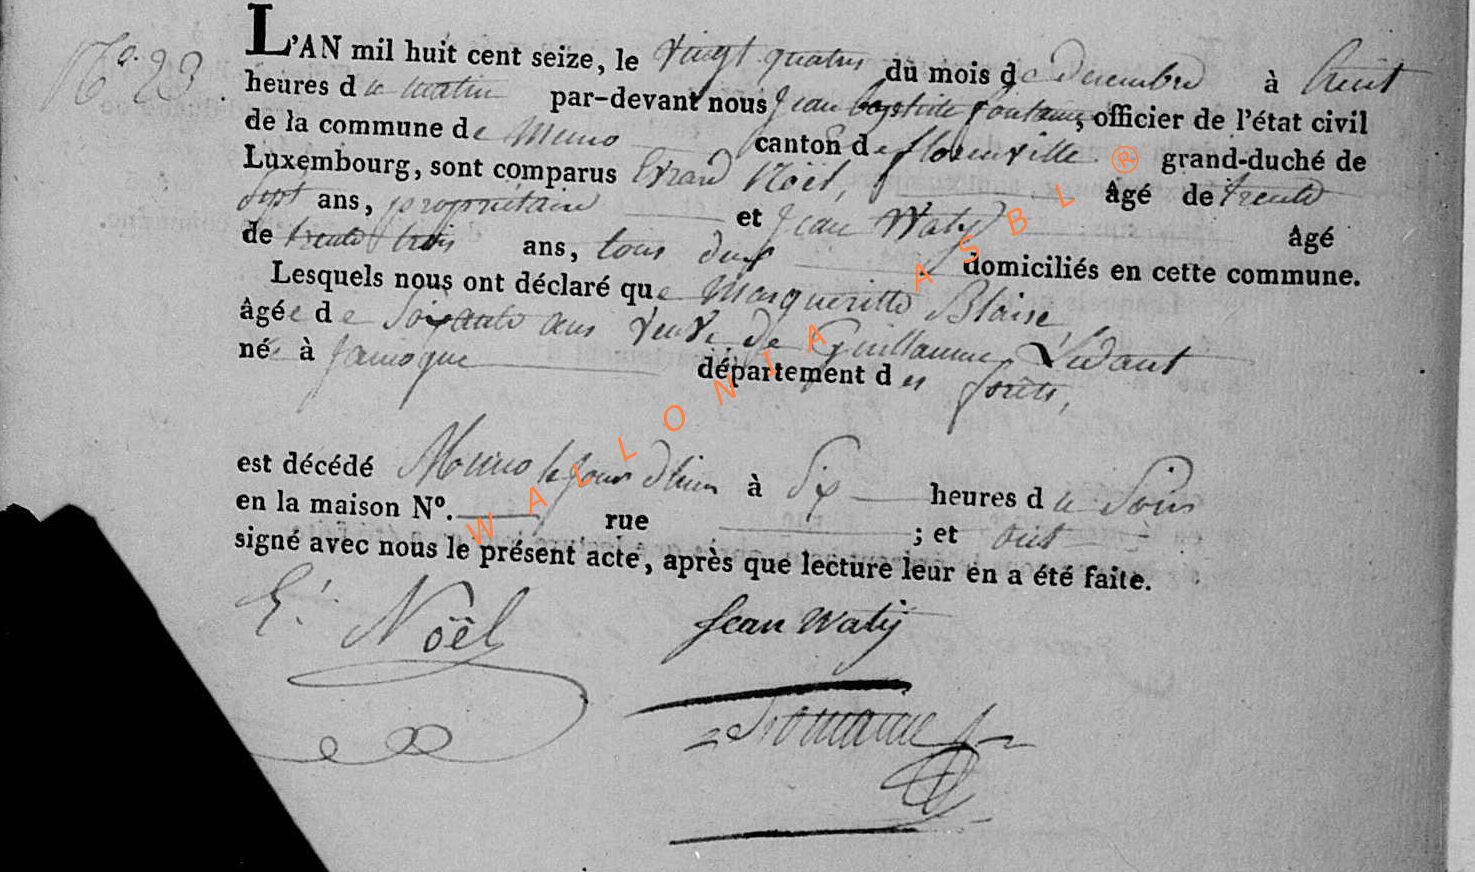 N.º 23
L'AN mil huit cent seize, le vingt quatre du mois de decembre à huit
heures du matin par-devant nous Jean baptiste fontaine, officier de l'état civil
de la commune de Muno canton de florenville grand-duché de
Luxembourg, sont comparus Erard Noël, âgé de trente
sept ans, propriétaire et Jean Waty âgé
de trente trois ans, tous deux domiciliés en cette commune.
Lesquels nous ont déclaré que Margueritte Blaise,
âgée de soixante ans veuve de Guillaume
né à Jamogue département des forêts,
est décédé Muno le jour d'hier à six heures du soir
en la maison Nº. rue ; et ont
signé avec nous le présent acte, après que lecture leur en a été faite.
E. Noël Jean Watÿ
fontaine
WALLONIA ASBL ®